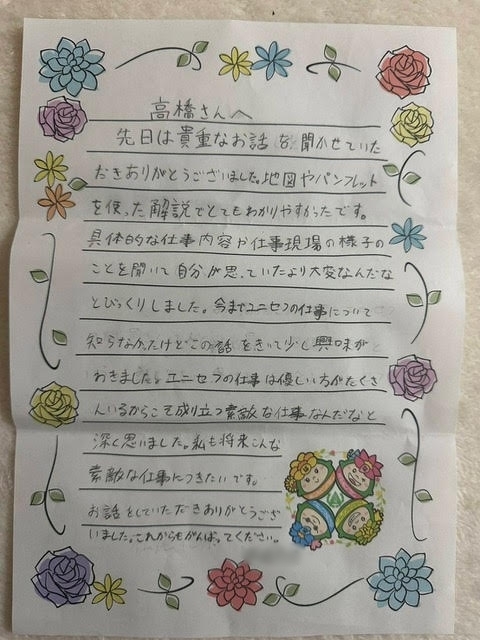 高橋さんへ
先日は貴重なお話を聞かせていた
だきありがとうございました。地図やパンフレット
を使った解説でとてもわかりやすかったです。
具体的な仕事内容か仕事現場の様子の
ことを聞いて自分が思っていたより大変なんだな
とびっくりしました。今までユニセフの仕事について
知らなかったけどこの話をきいて少し興味が
おきました。ユニセフの仕事は優しい方がたくさ
んいるからこそ成り立つ素敵な仕事なんだなと
深く思いました。私も将来こんな
素敵な仕事につきたいです。
お話をしていただきありがとうござ
いました。これからもがんばってください。